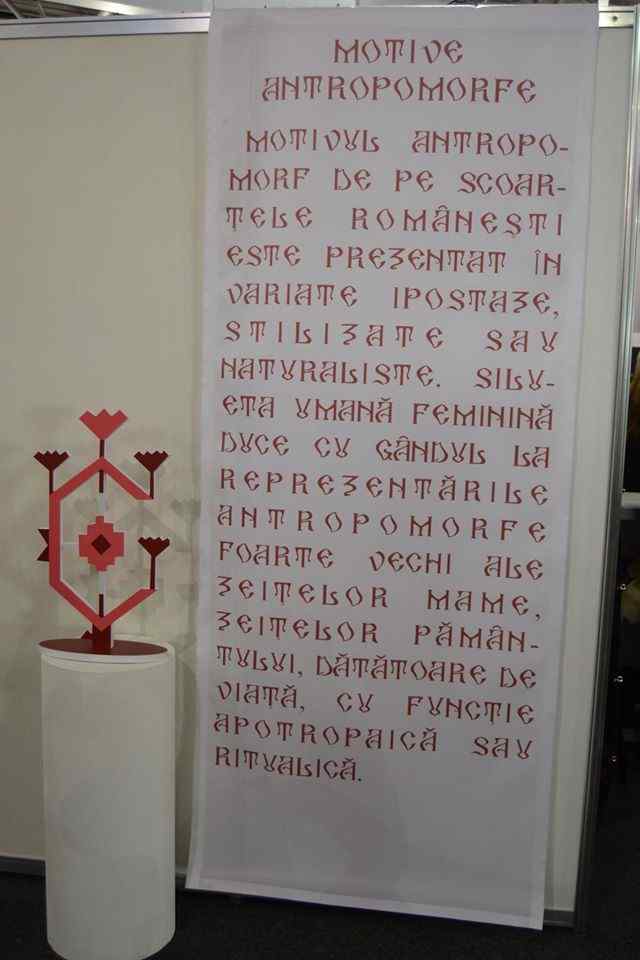 MOTIVE
ANTROPOMORFE
MOTIVUL ANTROPO-
MORF DE PE SCOAR-
ȚELE ROMÂNEȘTI
ESTE PREZENTAT ÎN
VARIATE IPOSTAZE,
STILIZATE SAU
NATURALISTE. SILU-
ETA UMANĂ FEMININĂ
DUCE CU GÂNDUL LA
REPREZENTĂRILE
ANTROPOMORFE
FOARTE VECHI ALE
ZEIȚELOR MAME,
ZEIȚELOR PĂMÂN-
TULUI, DĂTĂTOARE DE
VIAȚĂ, CU FUNCȚIE
APOTROPAICĂ SAU
RITUALICĂ.